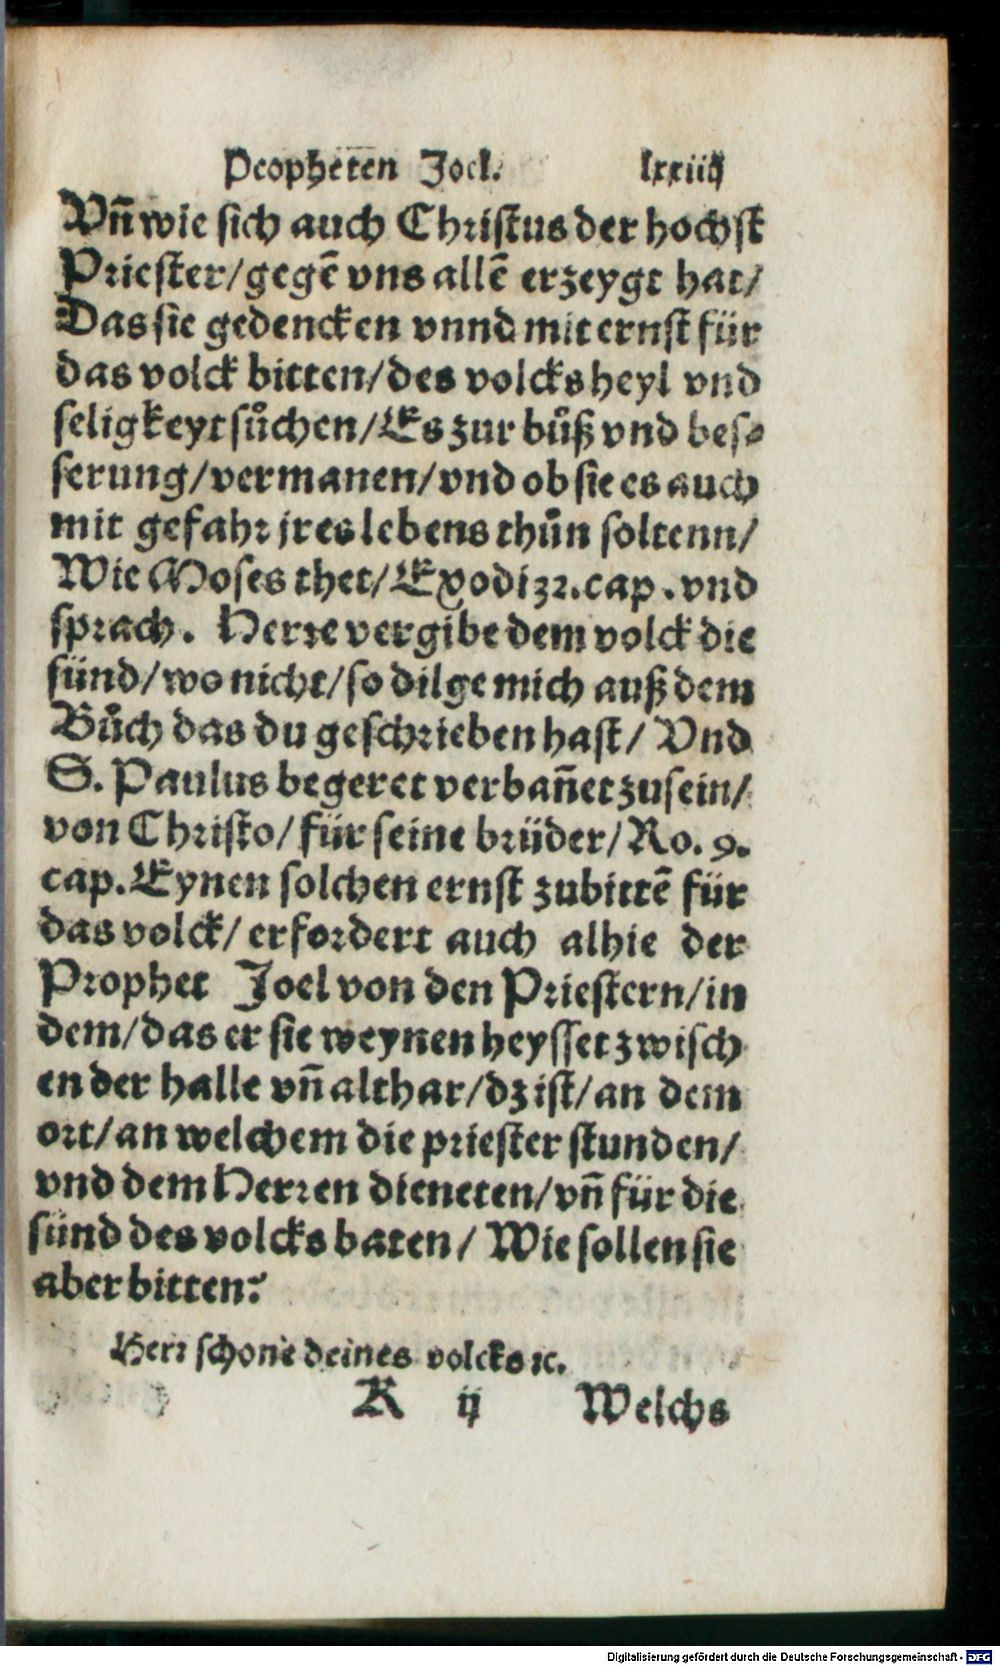 Propheten Joel. lxxiiij
Vñ wie sich auch Christus der hochst
Priester/gegē vns allē erzeygt hat/
Das sie gedencken vnnd mit ernst für
das volck bitten/des volcks heyl vnd
seligkeyt sůchen/Es zur bůß vnd bes⸗
serung/vermanen/vnd ob sie es auch
mit gefahr jres lebens thůn soltenn/
Wie Moses thet/Exodi 32. cap. vnd
sprach. Herre vergibe dem volck die
sünd/wo nicht/so dilge mich auß dem
Bůch das du geschrieben hast/ Vnd
S. Paulus begeret verbañet zusein/
von Christo/für seine brüder/Ro. 9.
cap. Eynen solchen ernst zubittē für
das volck/ erfordert auch alhie der
Prophet Joel von den Priestern/in
dem/das er sie weynen heysset zwisch
en der halle vñ althar/dz ist/an dem
ort/an welchem die priester stunden/
vnd dem Herren dieneten/vñ für die
sünd des volcks baten/ Wie sollen sie
aber bitten?
Herr schone deines volcks ꝛc.
K ij Welchs
Digitalisierung gefördert durch die Deutsche Forschungsgemeinschaft - DFG